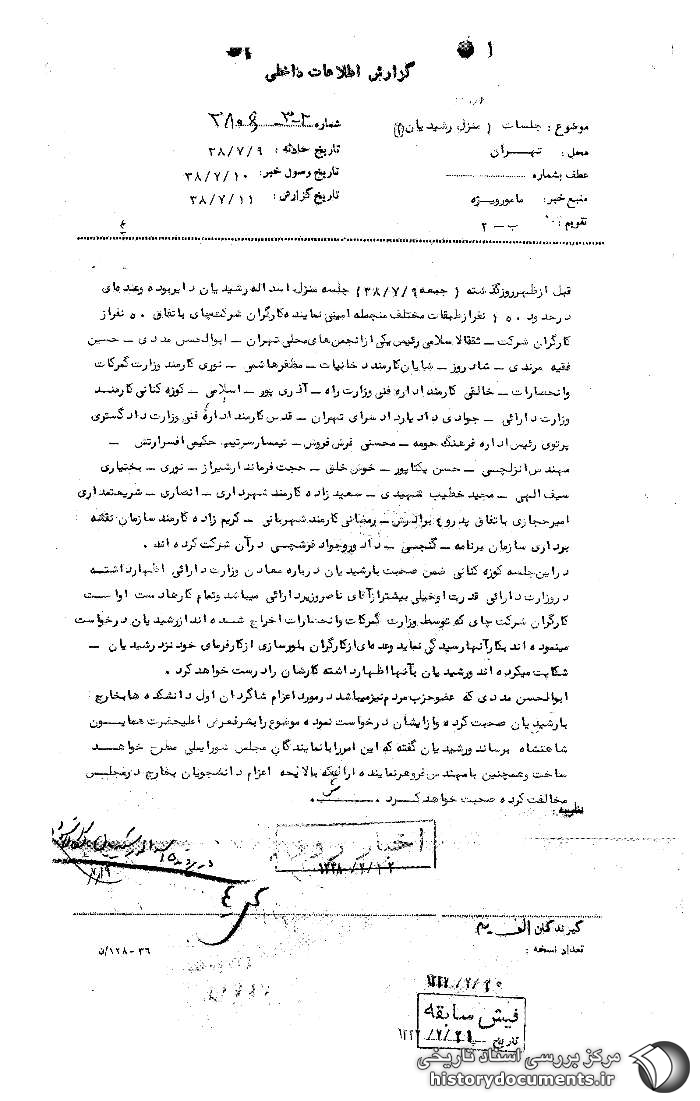 گزارش اطلاعات داخلی
موضوع : جلسات ( منزل رشیدیان )
شماره
محل : تهران
تاریخ حادثه : ۳۸/۷/۹
عطف بشماره
تاریخ وصول خبر: ۳۸/۷/۱۰
منبع خبر: مامور ویژه
تاریخ گزارش : ۳۸/۷/۱۱
تقویم : ب - ۲
قبل از ظهر روز گذشته ( جمعه ۳۸/۷/۹ ) جلسه منزل اسداله رشیدیان دایر بوده و عده‌ای
در حدود ۱۵۰ نفر از طبقات مختلف منجمله امینی نماینده کارگران شرکت چای باتفاق ۵۰ نفر از
کارگران شرکت – ثقفالاسلامی رئیس یکی از انجمن های محلی تهران – ابوالحسن مددی – حسین
فقیه مرندی – شادروز – شایان کارمند دخانیات – مظفر هاشمی – نوری کارمند وزارت گمرکات
وانحصارات – خالقی کارمند اداره فنی وزارت راه – آذری پور – اسلامی – کوزه کنانی کارمند
وزارت دارائی – جوادی دادیار دادسرای تهران – قدس کارمند اداره فنی وزارت دادگستری
پرتوی رئیس اداره فرهنگ حومه – محسنی فرش فروش – تیمسار سرتیپ حکیمی افسر ارتش –
مهندس انزلچی – حسن یکتاپور – خوش خلق – حجت فرماندار شیراز – نوری – بختیاری
سیف الهی – مجید خطیب شهیدی – سعیدزاده کارمند شهرداری – انصاری – شریعتمداری
امیر حجازی باتفاق پدر و ۴ برادرش – رمضانی کارمند شهربانی – کریم زاده کارمند سازمان نقشه
برداری سازمان برنامه – گنجی – دادور و جواد فرشچی در آن شرکت کرده اند .
در این جلسه کوزه کنانی ضمن صحبت بارشیدیان درباره معادن وزارت دارائی اظهار داشته
در وزارت دارائی قدرت او خیلی بیشتر از آقای ناصر وزیر دارائی میباشد و تمام کارها دست او است
کارگران شرکت چای که توسط وزارت گمرکات وانحصارات اخراج شده اند از رشیدیان درخواست
مینموده اند بکار آنها رسیدگی نماید و عده‌ای از کارگران بلورسازی از کارفرمای خود نزد رشیدیان –
شکایت میکرده اند و رشیدیان بآنها اظهار داشته کارشان را درست خواهد کرد .
ابوالحسن مددی که عضو حزب مردم نیز میباشد در مورد اعزام شاگردان اول دانشکده ها بخارج :
بارشیدیان صحبت کرده و از ایشان درخواست نموده موضوع را بشرفعرض اعلیحضرت همایون
شاهنشاه برساند و رشیدیان گفته که این امر را با نمایندگان مجلس شورایملی مطرح خواهد
ساخت و همچنین با مهندس فروهر نماینده اراک که بالایحه اعزام دانشجویان بخارج در مجلس
مخالفت کرده صحبت خواهد کرد .
نظریه :
اخبار روز
گیرندگان الف
تعداد نسخه :
۳۶-۱۲۸/ن
فیش سابقه
تاریخ
مرکز بررسی اسناد تاریخی
historydocuments.ir